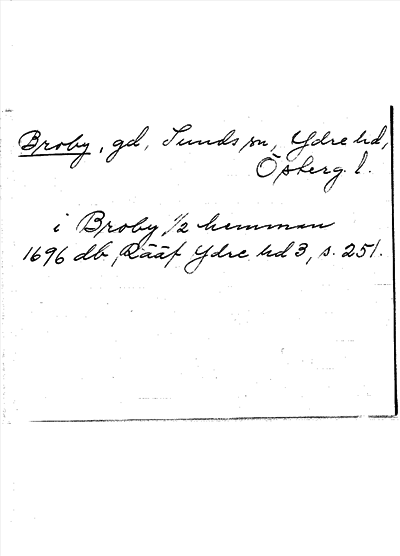 Broby, gd, Sunds sn, Ydre hd,
Österg. l.
i Broby, 1/2 hemman
1696 db, Rääf Ydre hd 3, s. 251.